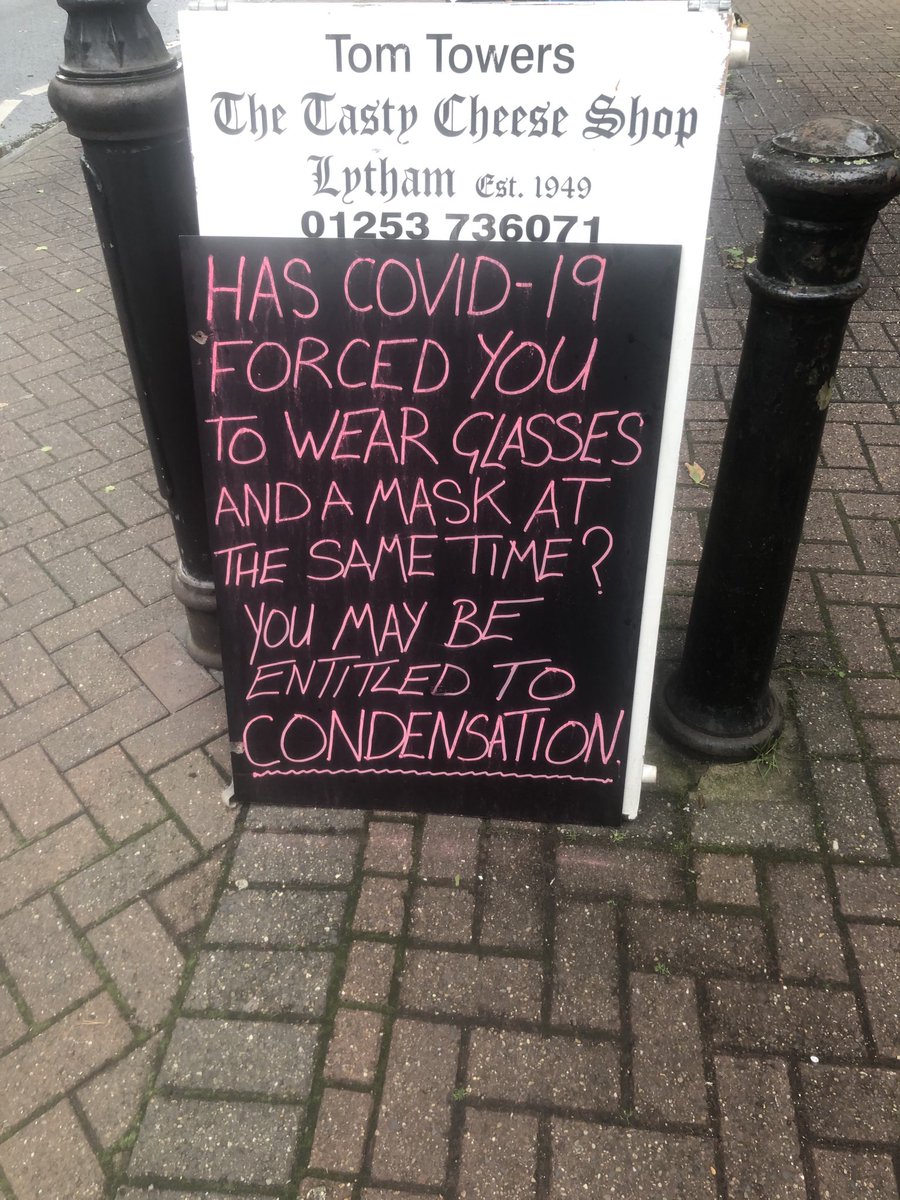 Tom Towers
The Tasty Cheese Shop
Lytham Est. 1949
01253 736071
HAS COVID-19
FORCED YOU
TO WEAR GLASSES
AND A MASK AT
THE SAME TIME?
YOU MAY BE
ENTITLED TO
CONDENSATION.